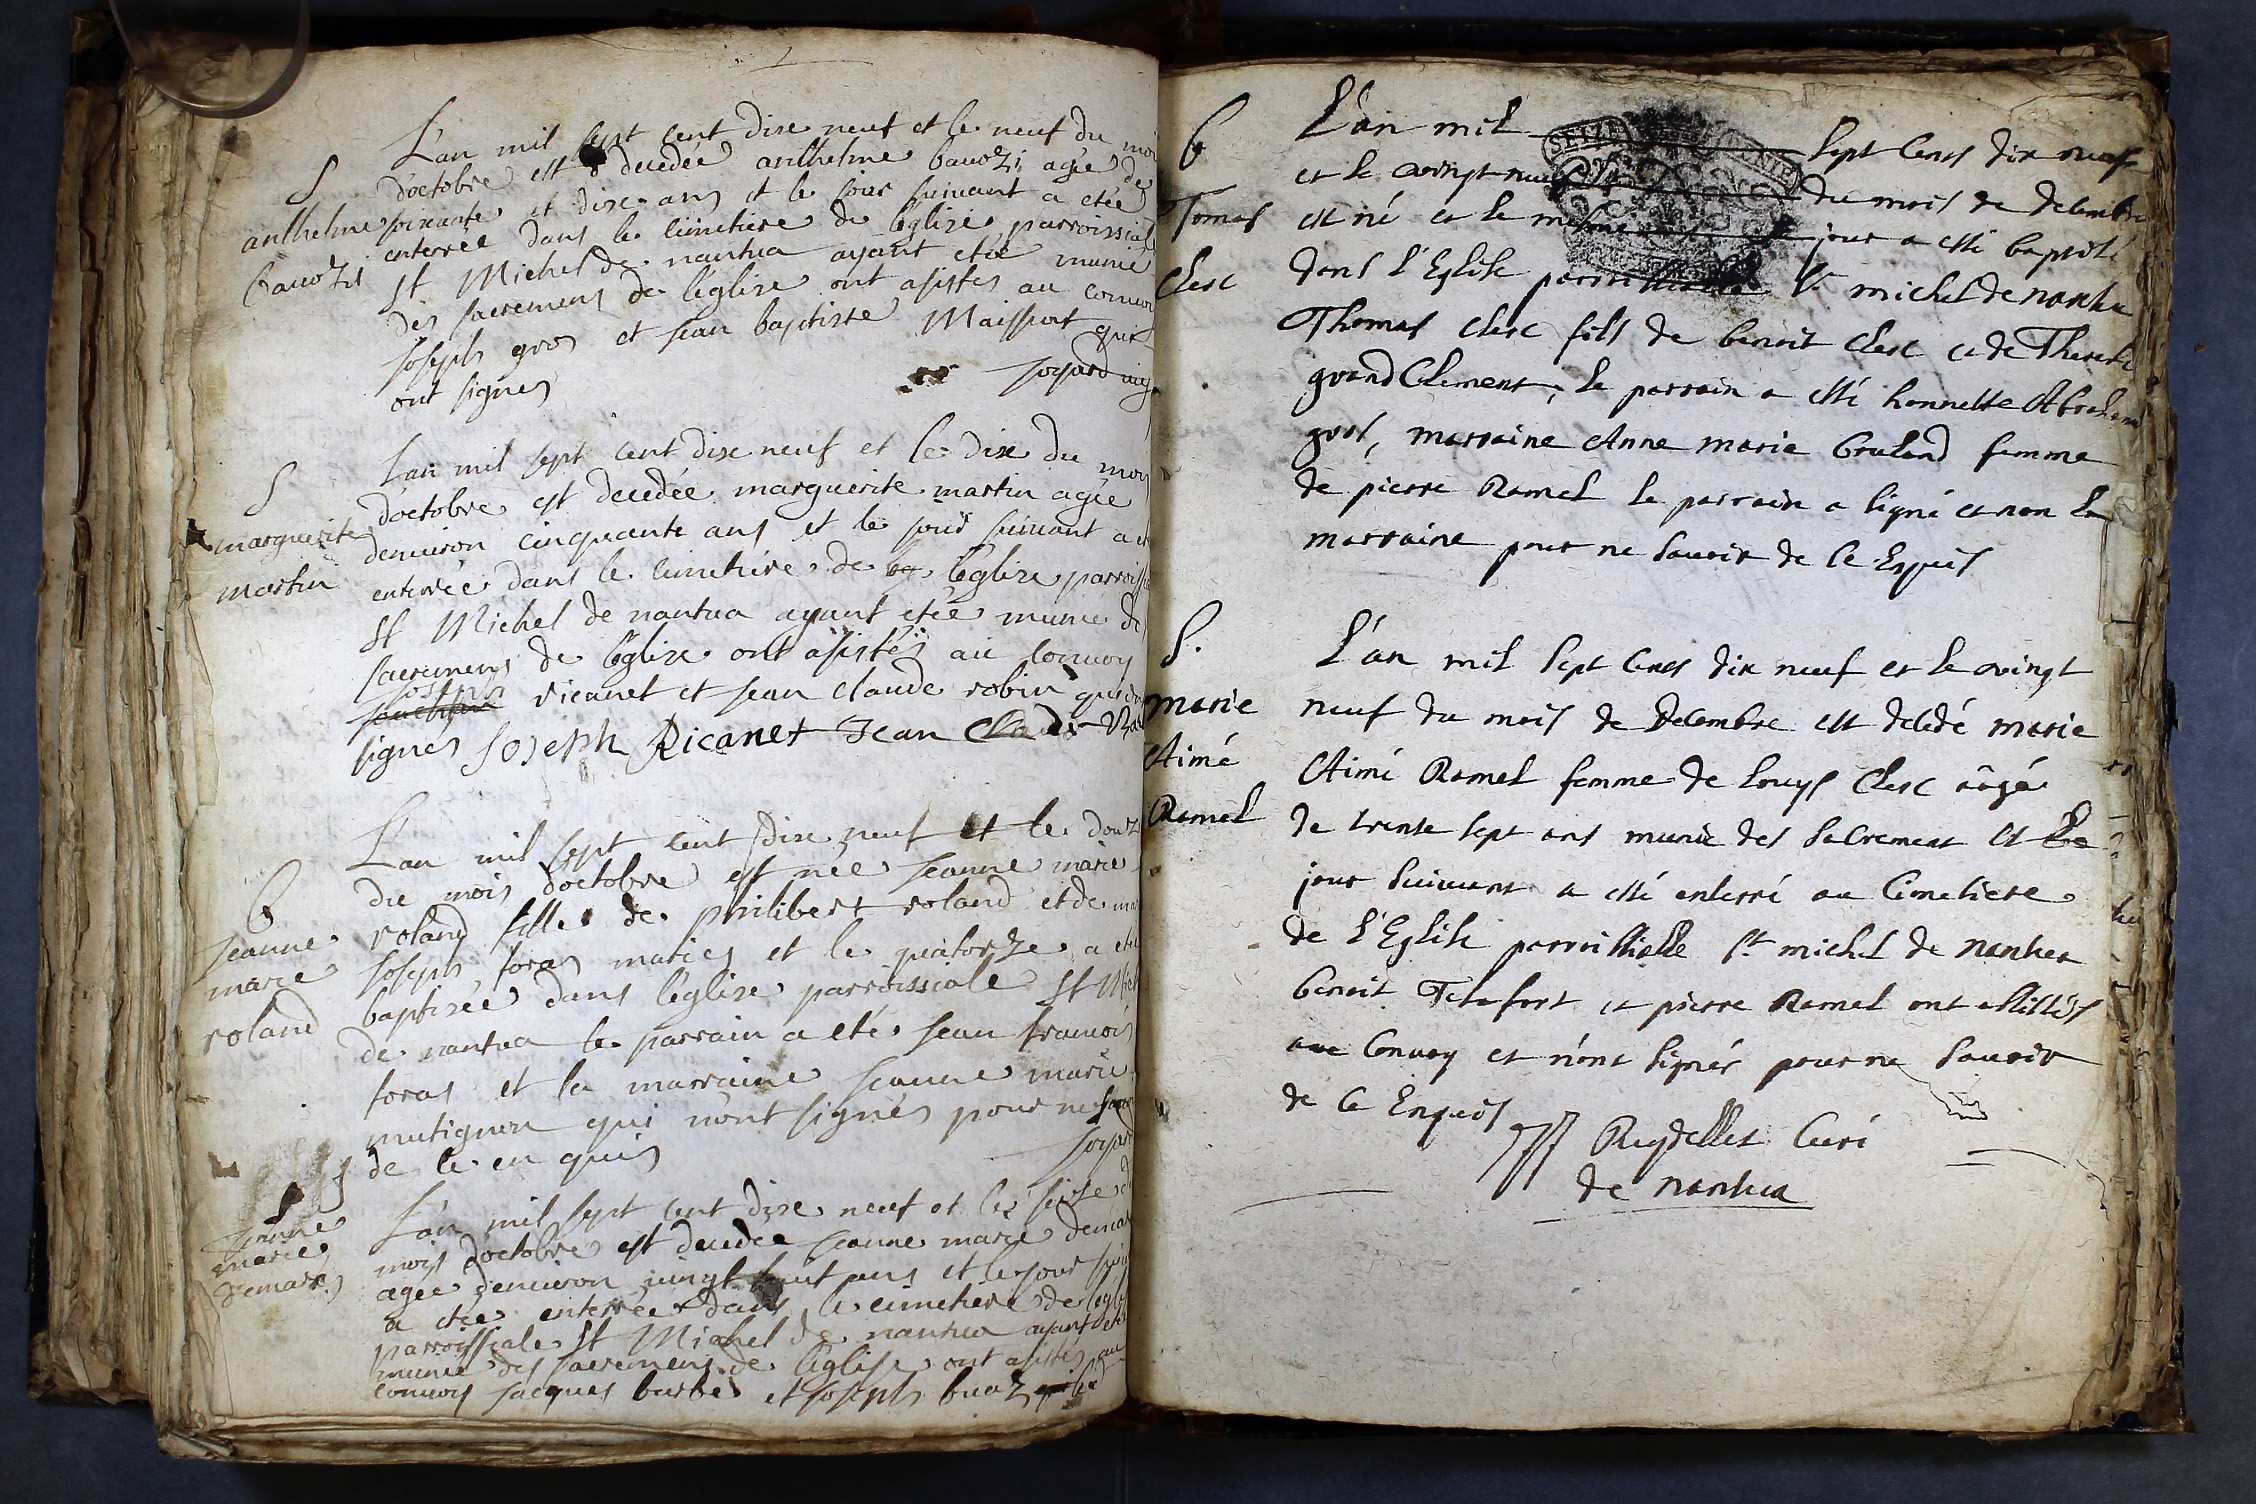 L'an mil sept cent dixe neuf et le neuf du moi
S
d'octobre est decedée anthelme bauozi agée de
anthelme
soixante et dixe ans et le jour suivant a etée
bauozi
enterrée dans le cimetiere de l'eglize parroissiale
St Michel de nantua ayant etée munie
des sacremens de l'eglize ont asistes au convoi
joseph gros et jean baptiste Maissiat qui
ont signes
joyard
L'an mil sept cent dixe neuf et le dix du mois
S
d'octobre est decedée marguerite martin agée
marguerite
martin
d'environ cinquante ans et le jour suivant a et
enterrée dans le cimetiere de l'eglize parroissi
St Michel de nantua ayant etée munie de
sacremens de l'eglize ont asistés au convoy
joseph
ricanet et jean claude robin qui
signes Joseph Ricanet Jean Claude
L'an mil sept cent dixe neuf et le douz
B
du mois d'octobre est née jeanne marie
jeanne
marie
roland
roland fille de philibert roland et de ma
joseph foras maties et le quatorze a etée
baptizée dans l'eglize parroissiale St Mich
de nantua le parrain a eté jean francois
foras et la marraine jeanne marie
mutignon qui n'ont signés pour ne
de ce en quis
joyard
L'an mil sept cent dixe neuf et le seize d
S
jeanne
marie
demars
mois d'octobre est decedée jeanne marie demar
agée d'environ vingt huit ans et le jour suiv
a etée enterrée dans le cimetiere de l'egl
parroissiale St Michel de nantua ayant eté
munie des sacremens de l'eglise ont asistés au
convois jacques barbe et joseph buaz
B
Tomas
Clerc
L'an mil sept cents dix neuf
et le vingt neuf du mois de decembre
est né et le mesme jour a esté baptisé
dans l'Eglise parroissielle St michel de nantua
Thomas Clerc fils de benoit Clerc et de Therese
grand Clement, le parrain a esté honneste Abraham
gros, marraine Anne marie Bruland femme
de pierre Ramel le parrain a signé et non la
marraine pour ne savoir de ce Enquis
S.
marie
Aimé
Ramel
L'an mil sept cents dix neuf et le vingt
neuf du mois de decembre est decedé marie
Aimé Ramel femme de Louys Clerc aâgé
de trente sept ans munie des sacrement et le
jour suivant a esté enterré au Cimetiere
de l'Eglise parroissielle St michel de nantua
benoit Tetafort et pierre Ramel ont assistés
au Convoy et n'ont signés pour ne savoir
de ce Enquis
Ruydellet Curé
de nantua